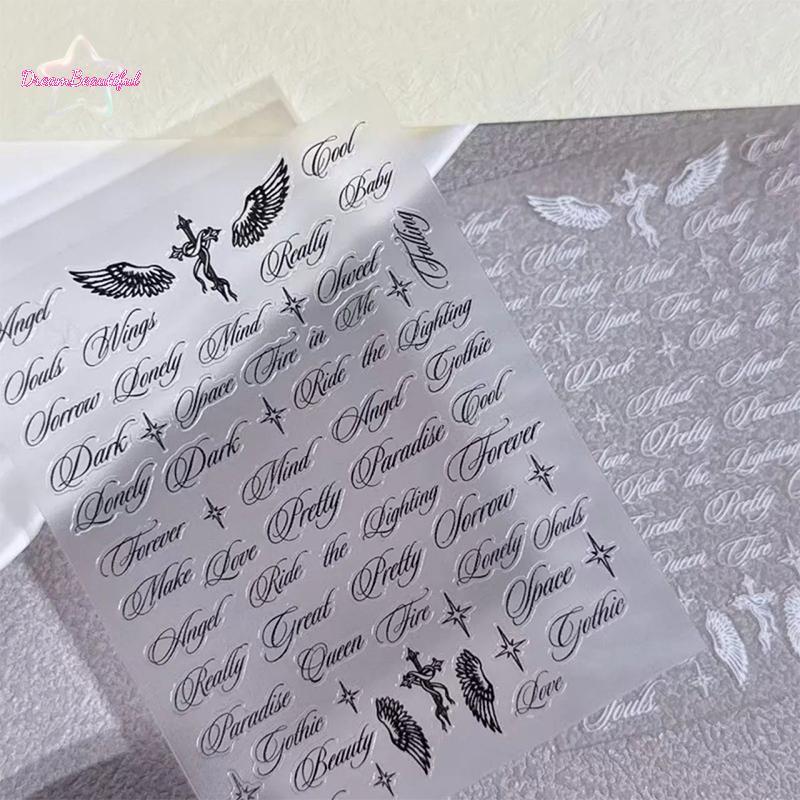 DreamBeautiful
Cool
Baby
Really
Falling
Angel
Sweet
Souls Wings
Mind
Me
Sorrow Lonely
Space Fire in
Dark
Ride the Lighting
Lonely Dark
Gothic
Mind Angel
Forever
Pretty Paradise Cool
Make Love
Forever
Angel
Ride the Lighting
Sorrow
Really Great Pretty
Lonely Souls
Paradise Queen Fire
Space
Gothic
Gothic
Beauty
Love
Cool
Really
Angel
Wings
Sweet
Lonely Mind
Me
Space Fire in
Dark
Ride the
Mind Angel
Love Pretty
Ride the Lighting
Great Pretty
Queen Fire
Souls